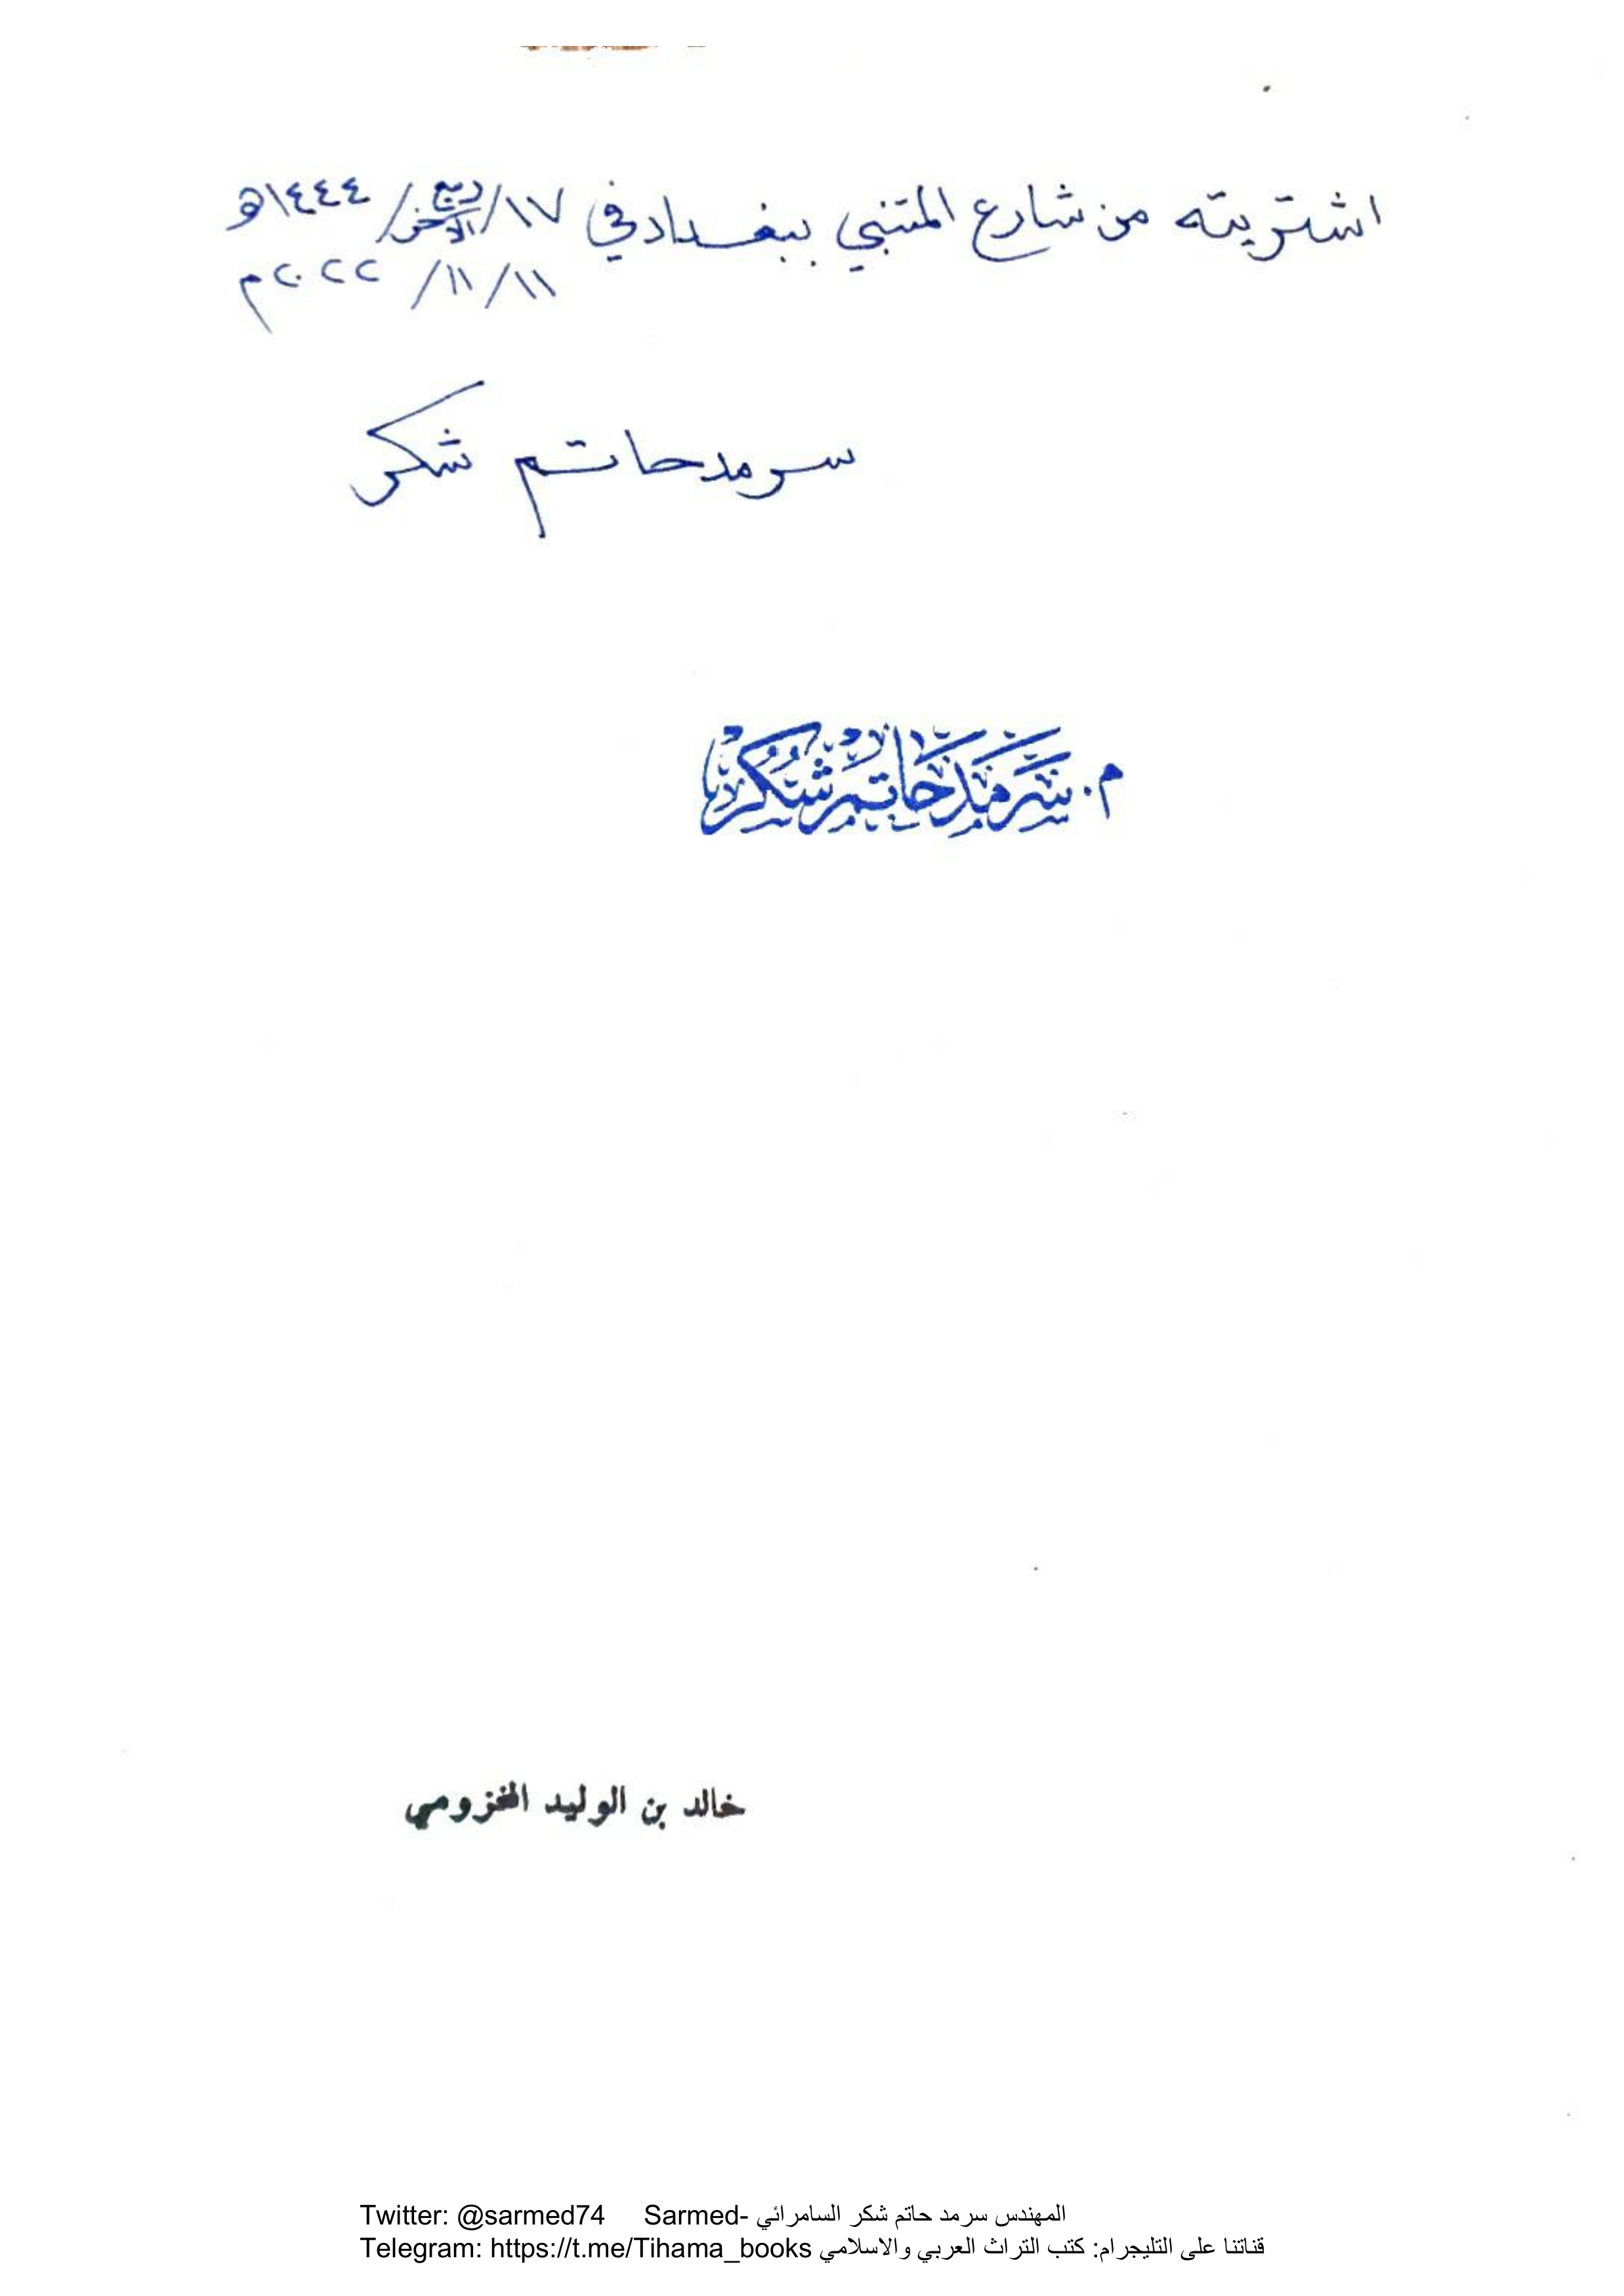 اشتريته من شارع المتنبي ببغداد في ١٧/ربيع الآخر/١٤٤٤هـ
١١/١١/٢٠٢٢م
سرمد حاتم شكر
م. سرمد حاتم شكر
خالد بن الوليد المخزومي
Twitter: @sarmed74 Sarmed- المهندس سرمد حاتم شكر السامرائي
Telegram: https://t.me/Tihama_books قناتنا على التليجرام: كتب التراث العربي والاسلامي